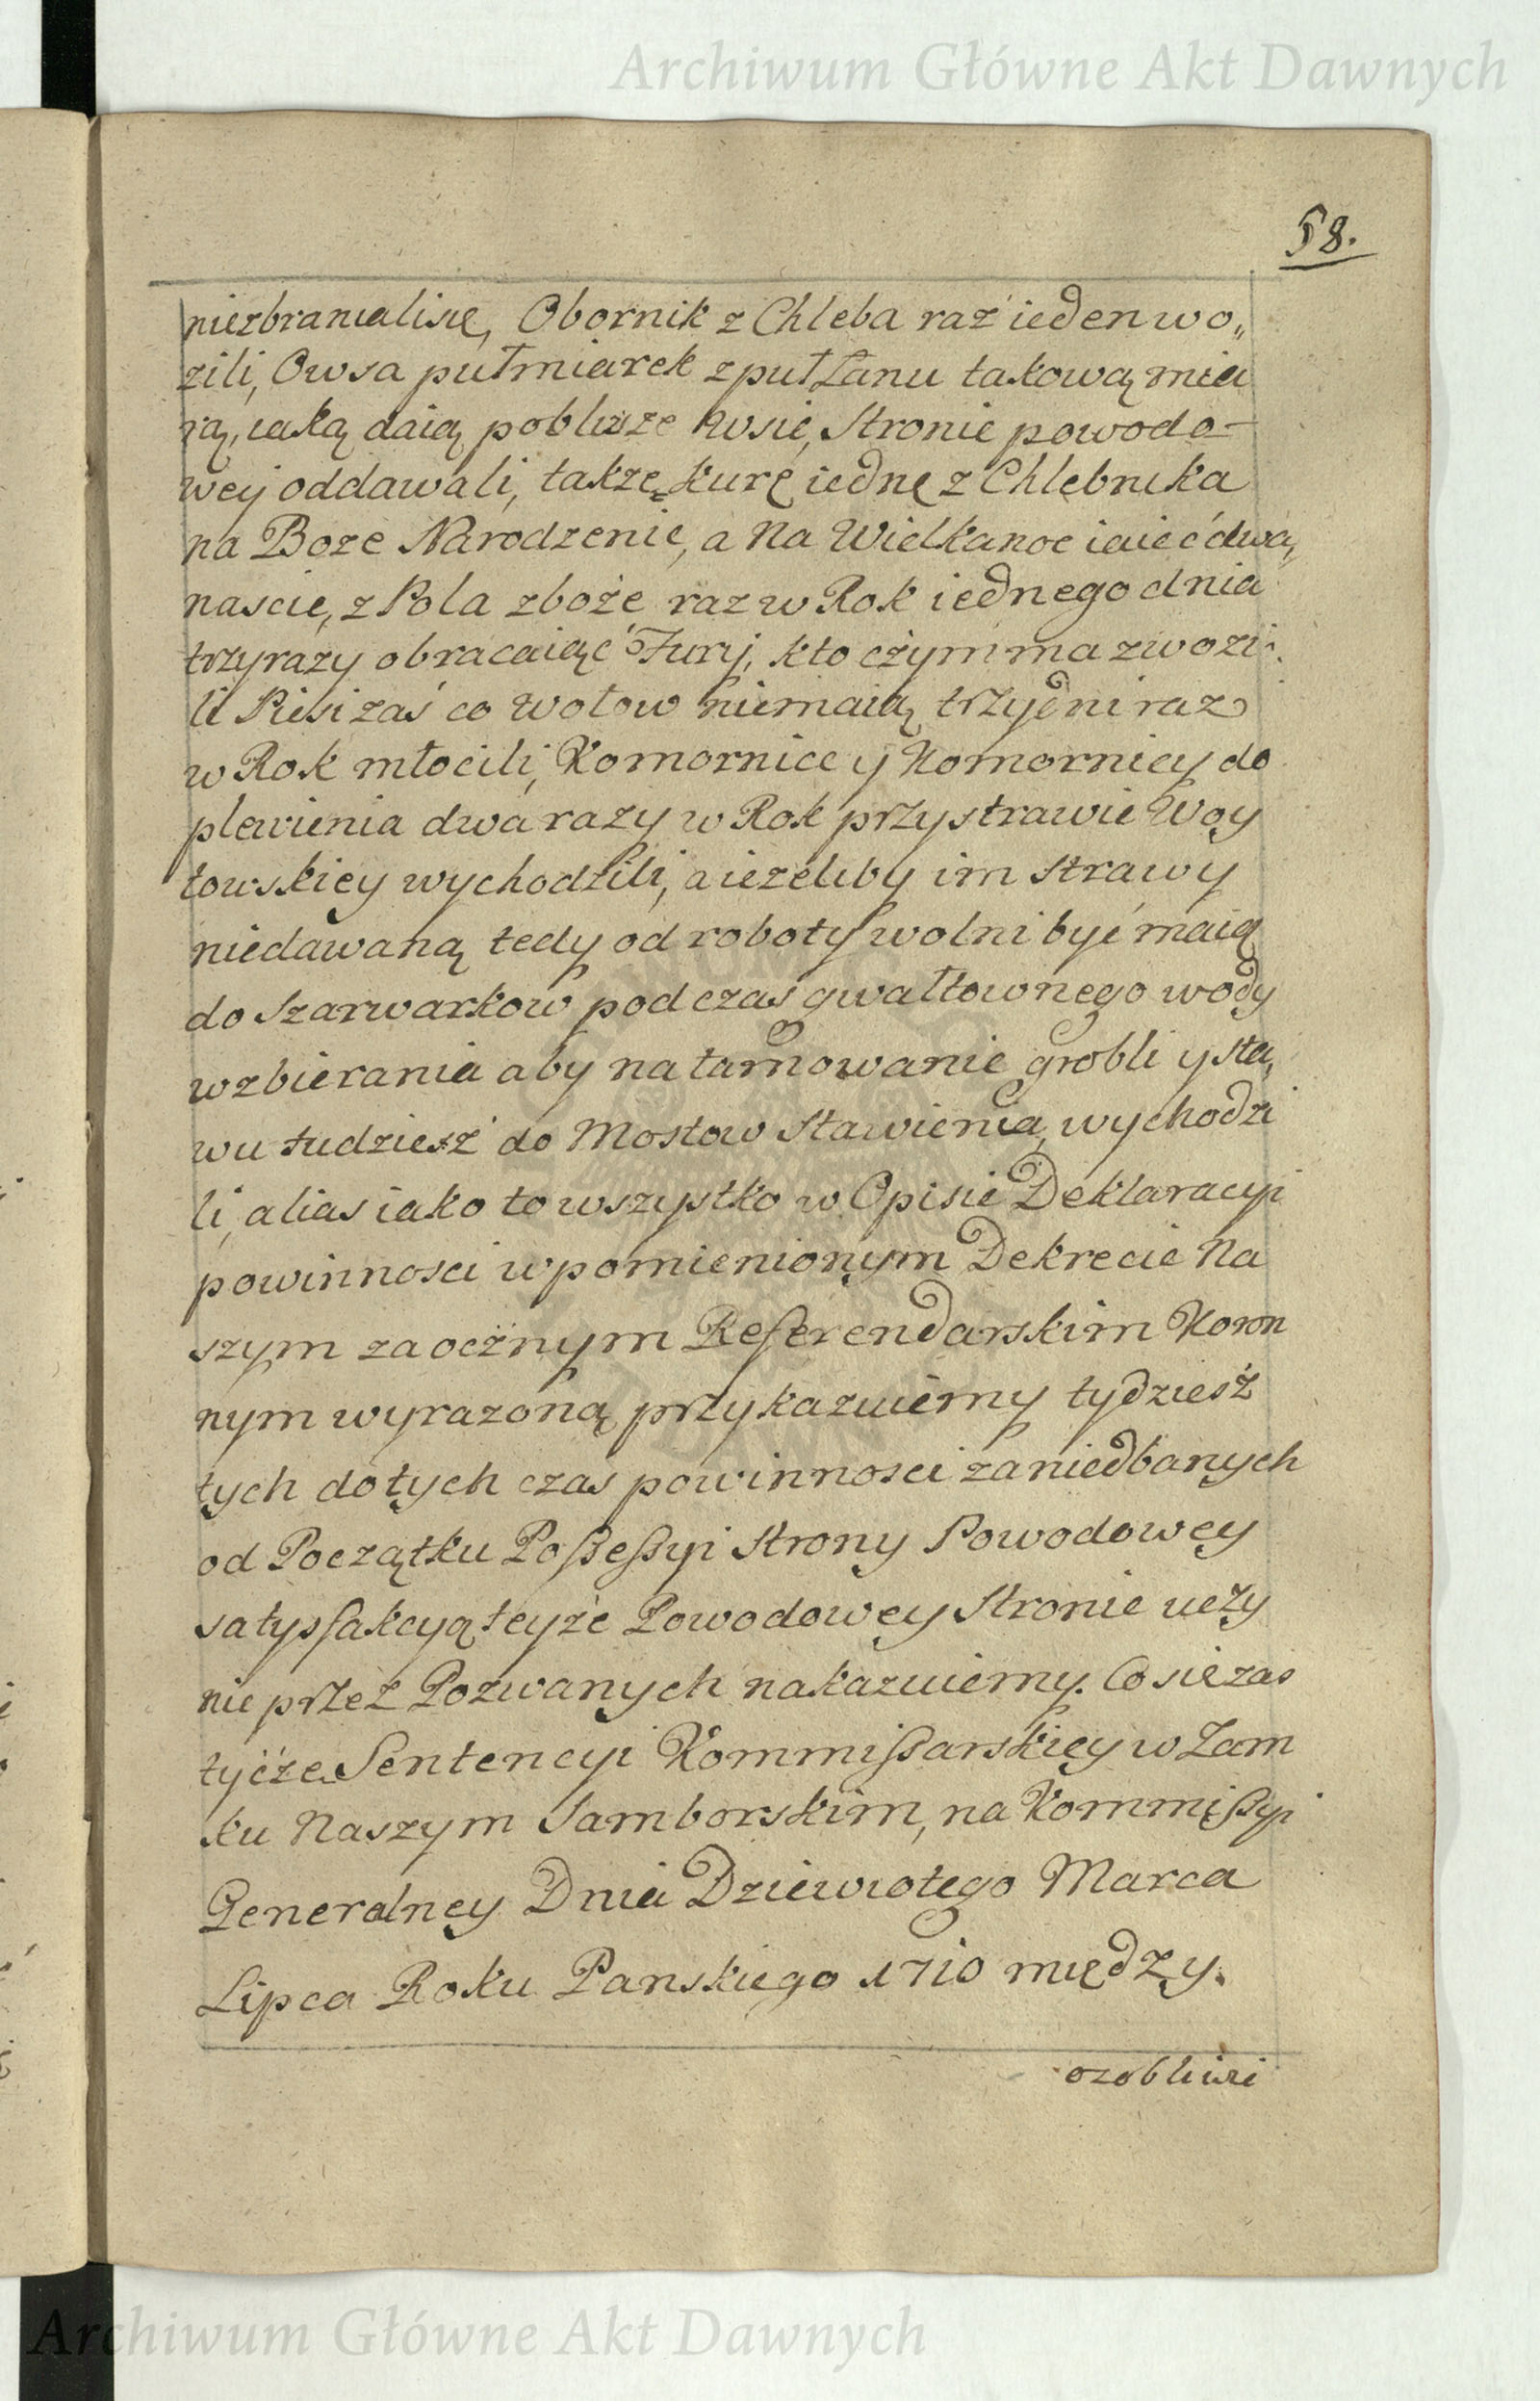 Archiwum Główne Akt Dawnych
58.
niezbraniali się, Obornik z Chleba raz ieden wo„
zili, Owsa pułmiarek z puł Łanu takową mia
rą, iaką daią poblizsze Wsie, Stronie powodo-
wey oddawali, takze kurę iednę z Chlebnika
na Boze Narodzenie, a Na Wielkanoc iaiec dwa„
nascie, z Pola zboże raz w Rok iednego dnia
trzy razy obracaiąc Fury, kto czym ma zwozi
li Piesi zaś co wołow niemaią trzy dni raz
w Rok młocili, Komornice y Komornicy do
plewienia dwa razy w Rok przy strawie Woy
towskiey wychodzili, a iezeliby im strawy
niedawaną tedy od roboty wolni być maią
do Szarwarkow pod czas gwałtownego wody
wzbierania aby na tamowanie grobli y sta„
wu tudziesz do Mostow stawienia wychodzi
li, alias iako to wszystko w Opisie Deklaracyi
powinnosci wpomienionym Dekrecie Na
szym zaocznym Referendarskim Koron
nym wyrazoną przykazuiemy tydziesz
tych do tych czas powinnosci zaniedbanych
od Początku Possessyi Strony Powodowey
satysfakcyą teyże Powodowey Stronie uczy
nie przez Pozwanych nakazuiemy. Co się zas
tycze Sentencyi Kommissarskiey w Zam
ku Naszym Samborskim, na Kommissyi
Generalney Dnia Dziewiotego Marca
Lipca Roku Panskiego 1710 między.
ozobliwi
Archiwum Główne Akt Dawnych